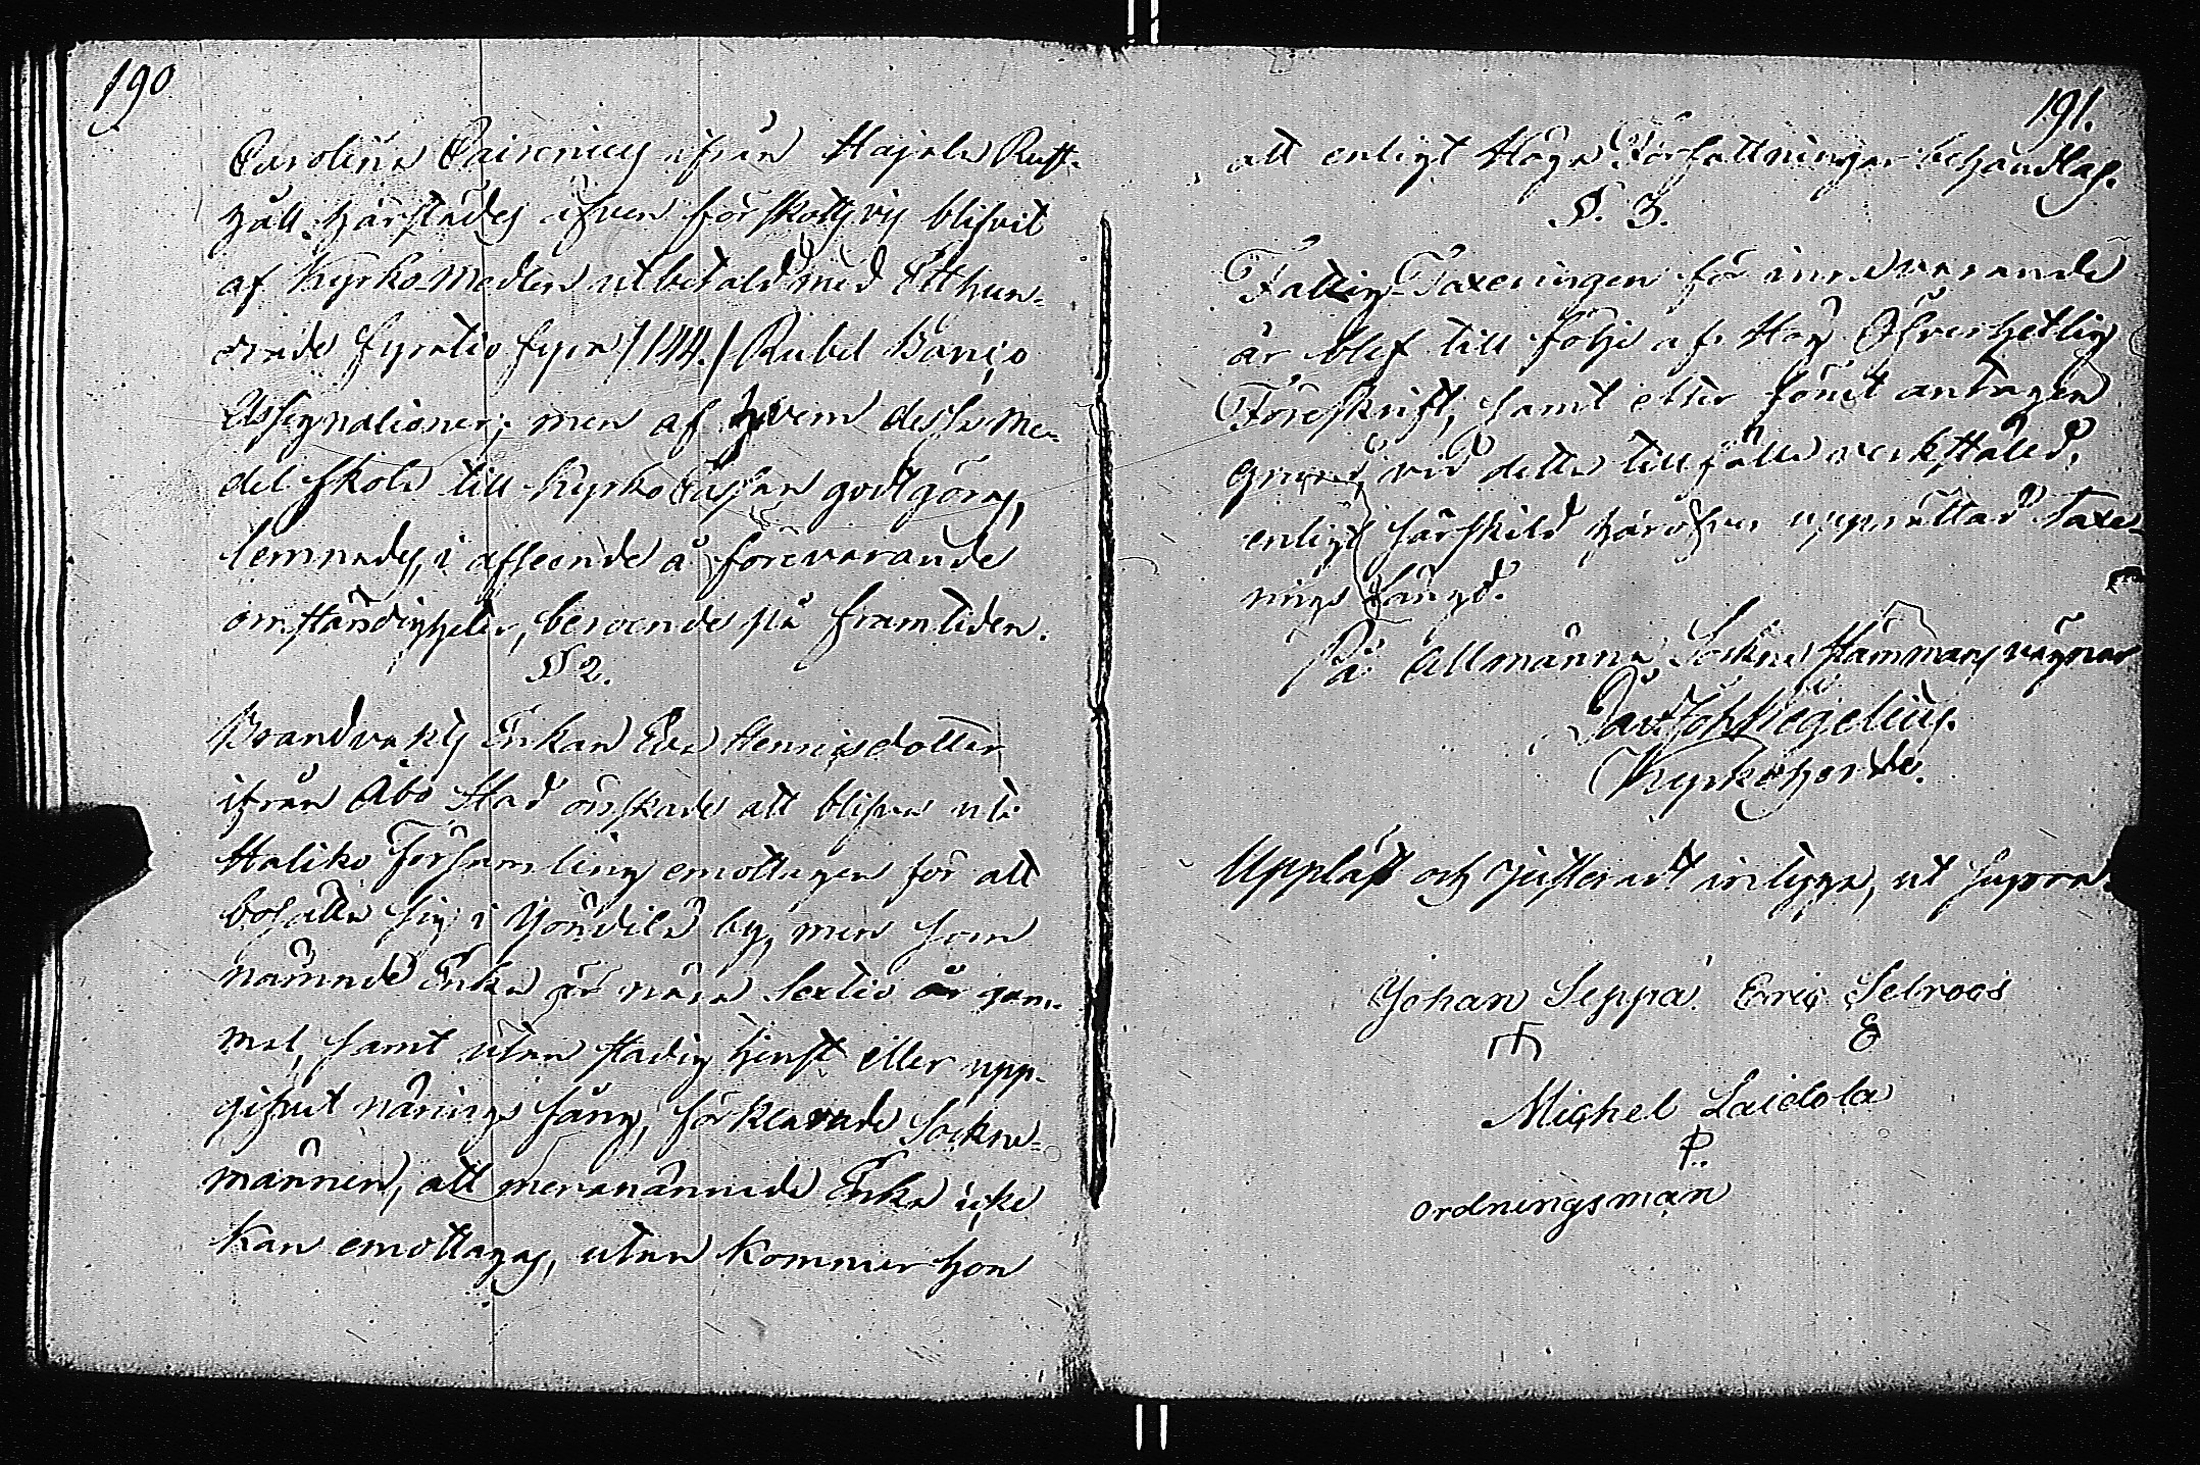 190
Carolina Cairenius ifrån Hajala Rust-
håll härstädes äfven förskottsvis blifvit
af Kyrko-Medlen utbetald med Etthun-
drade fyratio fyra /144./ Rubel Banco
Assignationer; men af hvem dessa me-
del skola till Kyrko Cassan godtgöras,
lemnades, i afseende å förevarande
omständigheter, beroende på framtiden.
§ 2.
Brandvakts Enkan Eva Henricsdotter
ifrån Åbo Stad önskade att blifva uti
Haliko Församling emottagen för att
bosätta sig i Yöndilä by; men som
nämnde Enka är nära Sextio år gam-
mal, samt utan stadig tjenst eller upp-
gifvit närings fång, förklarade Sockne-
männen, att meranämnde Enka icke
kan emottagas, utan kommer hon
191.
att enligt Höga Författningar behandlas.
§. 3.
Fattig-Taxeringen för innevarande
år blef till följe af Hög Öfverhetlig
Föreskrift, samt efter förut antagen
grund, vid detta tillfälle verkstäld,
enligt särskild häröfver upprättad Taxe-
rings Längd.
På Allmänna Sockne Stämmans vägnar
Joh Regelius.
Kyrkoherde.
Uppläst och Justeradt intygar, ut supra.
Johan Seppä. Eric Selroos
Michel Laidola
P.
ordningsman